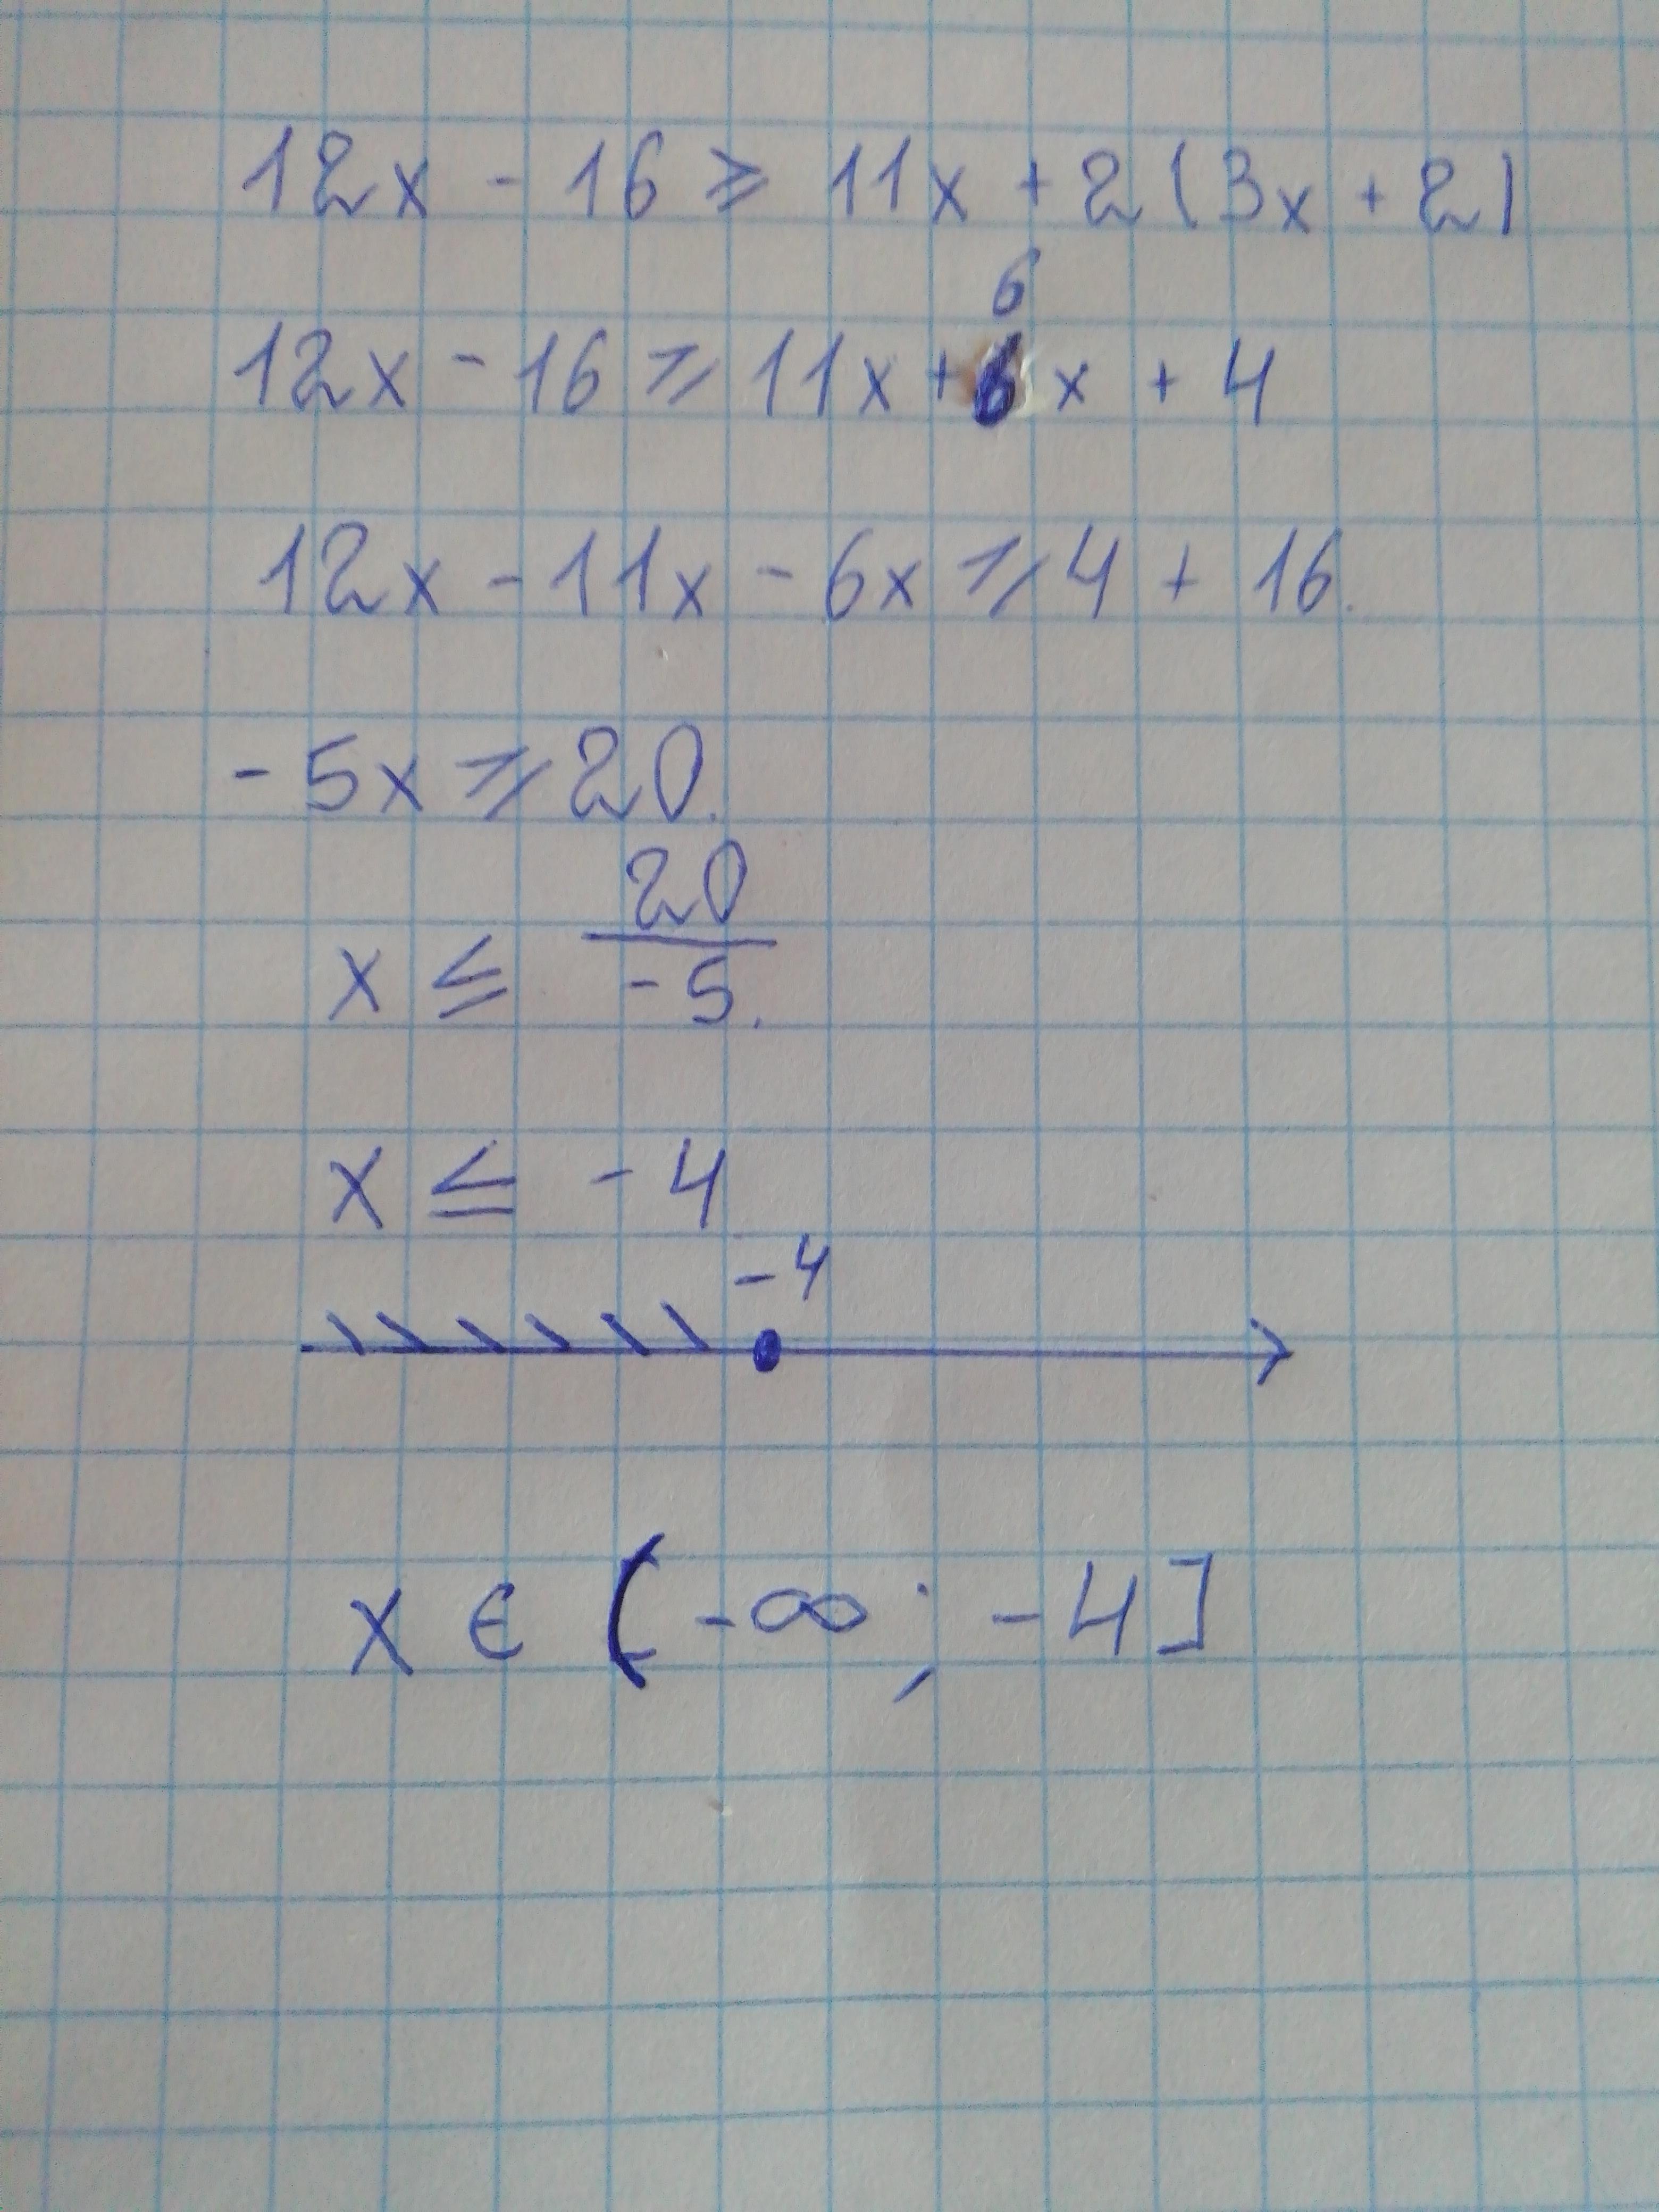 12x - 16 ≥ 11x + 2(3x + 2)
6
12x - 16 ≥ 11x + 6x + 4
12x - 11x - 6x ≥ 4 + 16.
- 5x ≥ 20.
x ≤ 20/-5.
x ≤ - 4
-4
x ∈ (-∞; -4]